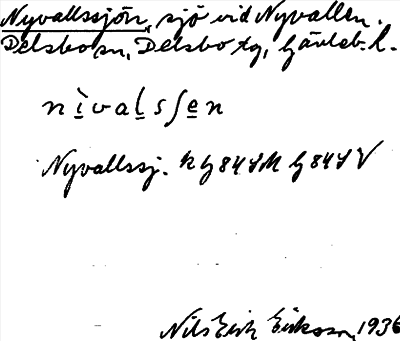 Nyvallssjön, sjö vid Nyvallen.
Delsbo sn, Delsbo tg, Gävleb. l.
nìvalsʃen
Nyvallssj. K G 84 SM G 84 S V
Nils Erik Eriksson, 1936